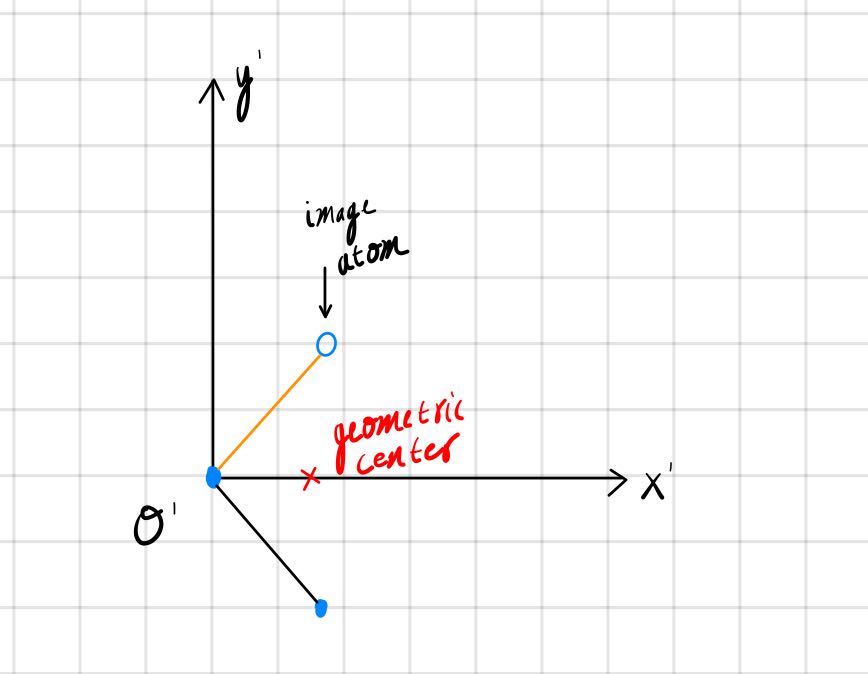 y'
image
atom
geometric
center
x'
O'